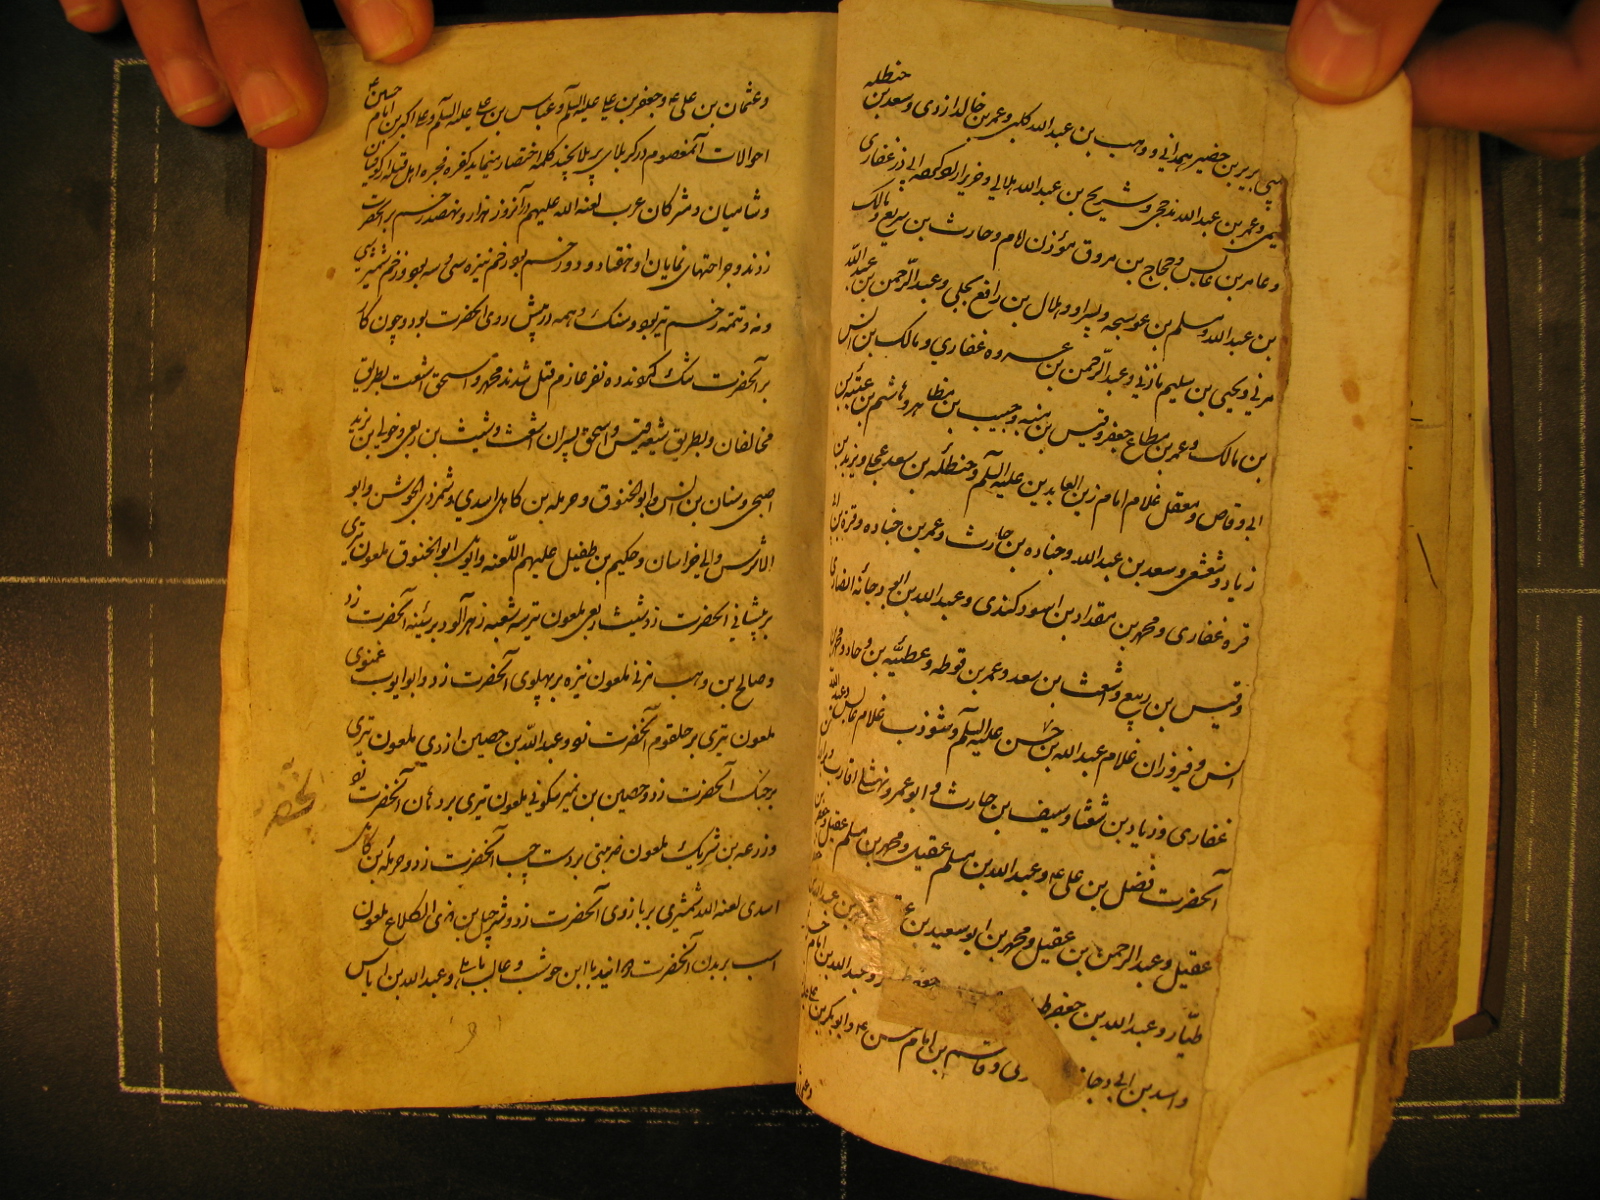 بریر بن خضیر همدانی و وهب بن عبدالله کلبی و عمر بن خالد ازدی و سعد بن حنظله
و عمر بن عبدالله مذحجی و شریح بن عبدالله هلالی و ابی ذر غفاری
و عامر بن و حجاج بن مسروق مؤذن امام و حارث بن سریع و مالک
بن عبدالله و مسلم بن عوسجه و پسر او و هلال بن رافع بجلی و عبدالرحمن بن عبدالله
مزنی و یحیی بن سلیم مازنی و عبدالرحمن بن عروه غفاری و مالک بن انس
بن مالک و عمر بن مطاع جعفر و قیس بن منبه و حبیب بن مظاهر و هاشم بن عتبه بن
ابی وقاص و معقل غلام امام زین العابدین علیه السلم و حنظله بن سعد عجلی و یزید بن
زیاد و شعشر و سعد بن عبدالله و جناده بن حارث و عمر بن جناده و قره بن ابی
قره غفاری و محمد بن مقداد بن اسود کندی و عبدالله بن ابو دجانه انصاری
و قیس بن ربیع و اشعث بن سعد و عمر بن قوطه و عطیه بن و حماد
انس و فیروزان غلام عبدالله بن حسن علیه السلم و شوذب غلام
غفاری و زیاد بن شعثا و سیف بن حارث و ابو عمرو نهشلی اقارب
آنحضرت فضل بن علی ع و عبدالله بن مسلم عقیل و محمد بن مسلم عقیل و جعفر بن
عقیل و عبدالرحمن بن عقیل و محمد بن ابو سعید بن بن عبدالله
طیار و عبدالله بن جعفر و عبدالله بن امام
و اسد بن ابی دجا و قاسم بن امام حسن ع و ابوبکر بن علی
و عثمان
و عثمان بن علی ع و جعفر بن علی علیه السلم و عباس بن علی علیه السلم و علی اکبر بن امام حسین ع
احوالات آنمعصوم در کربلای پر بلا بچند کلمه اختصار مینماید کفره فجره اهل قبله از کوفیان
و شامیان و مشرکان عرب لعنه الله علیهم در آنروز هزار و نهصد زخم بر آنحضرت
زدند و جراحتهای نمایان او هفتاد و دو زخم بود زخم نیزه سی و سه بود زخم شمشیر سی
و نه و تتمه زخم تیر بود و سنک و همه در پیش روی آنحضرت بود و چون کار
بر آنحضرت تنک کردند ده نفر عازم قتل شدند محمد و اسحق اشعث بطریق
مخالفان و بطریق شیعه قیس و اسحق پسران اشعث و شیث بن ربعی و خولی بن یزید
اصبحی و سنان بن انس و ابوالخنوق و حرمله بن کاهل اسدی و شمر ذی الجوشن و ابو
الاشرس والی خراسان و حکیم بن طفیل علیهم اللعنه ابوالخنوق ملعون تیری
بر پیشانی آنحضرت زد شیث ربعی ملعون تیر سه شعبه زهر آلود بر سینه آنحضرت زد
و صالح بن وهب مزنی ملعون نیزه بر پهلوی آنحضرت زد و ابو ایوب غنوی
ملعون تیری بر حلقوم آنحضرت زد و عبدالله بن حصین ازدی ملعون تیری
بر حنک آنحضرت زد و حصین بن نمیر سکونی ملعون تیری بر دهان آنحضرت زد
و زرعه بن شریک ملعون ضربتی بر دست چپ آنحضرت زد و حرمله بن کاهل
اسدی لعنه الله شمشیری بر بازوی آنحضرت زد و شرحبیل بن ذی الکلاع ملعون
اسب بر بدن آنحضرت دوانید با ابن حوشب و و عبدالله بن ایاس
آنحضر